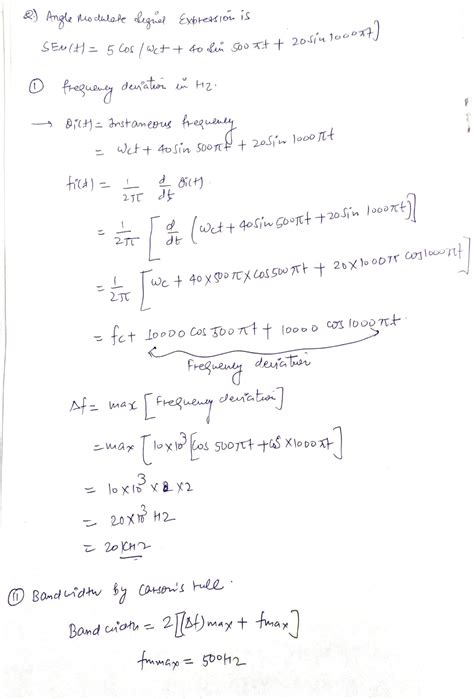 Q) Angle Modulate signal Expression is
SEM(t) = 5 Cos [ωct + 40 sin 500πt + 20 sin 1000πt]
① frequency deviation in Hz.
→ θi(t) = Instaneous frequency
= ωct + 40 sin 500πt + 20 sin 1000πt
fi(t) = 1/2π d/dt θi(t).
= 1/2π [d/dt (ωct + 40 sin 500πt + 20 sin 1000πt)]
= 1/2π [ωc + 40 × 500π × cos 500πt + 20 × 1000π cos 1000πt]
= fc + 10000 cos 500πt + 10000 cos 1000πt.
Frequency deviation
Δf = max [Frequency deviation]
= max [10×10³ [cos 500πt + cos × 1000πt]
= 10×10³ × 2
= 20×10³ Hz
= 20KHz
② Bandwidth by Carson's rule.
Bandwidth = 2[(Δf)max + fmax]
fmmax = 500Hz